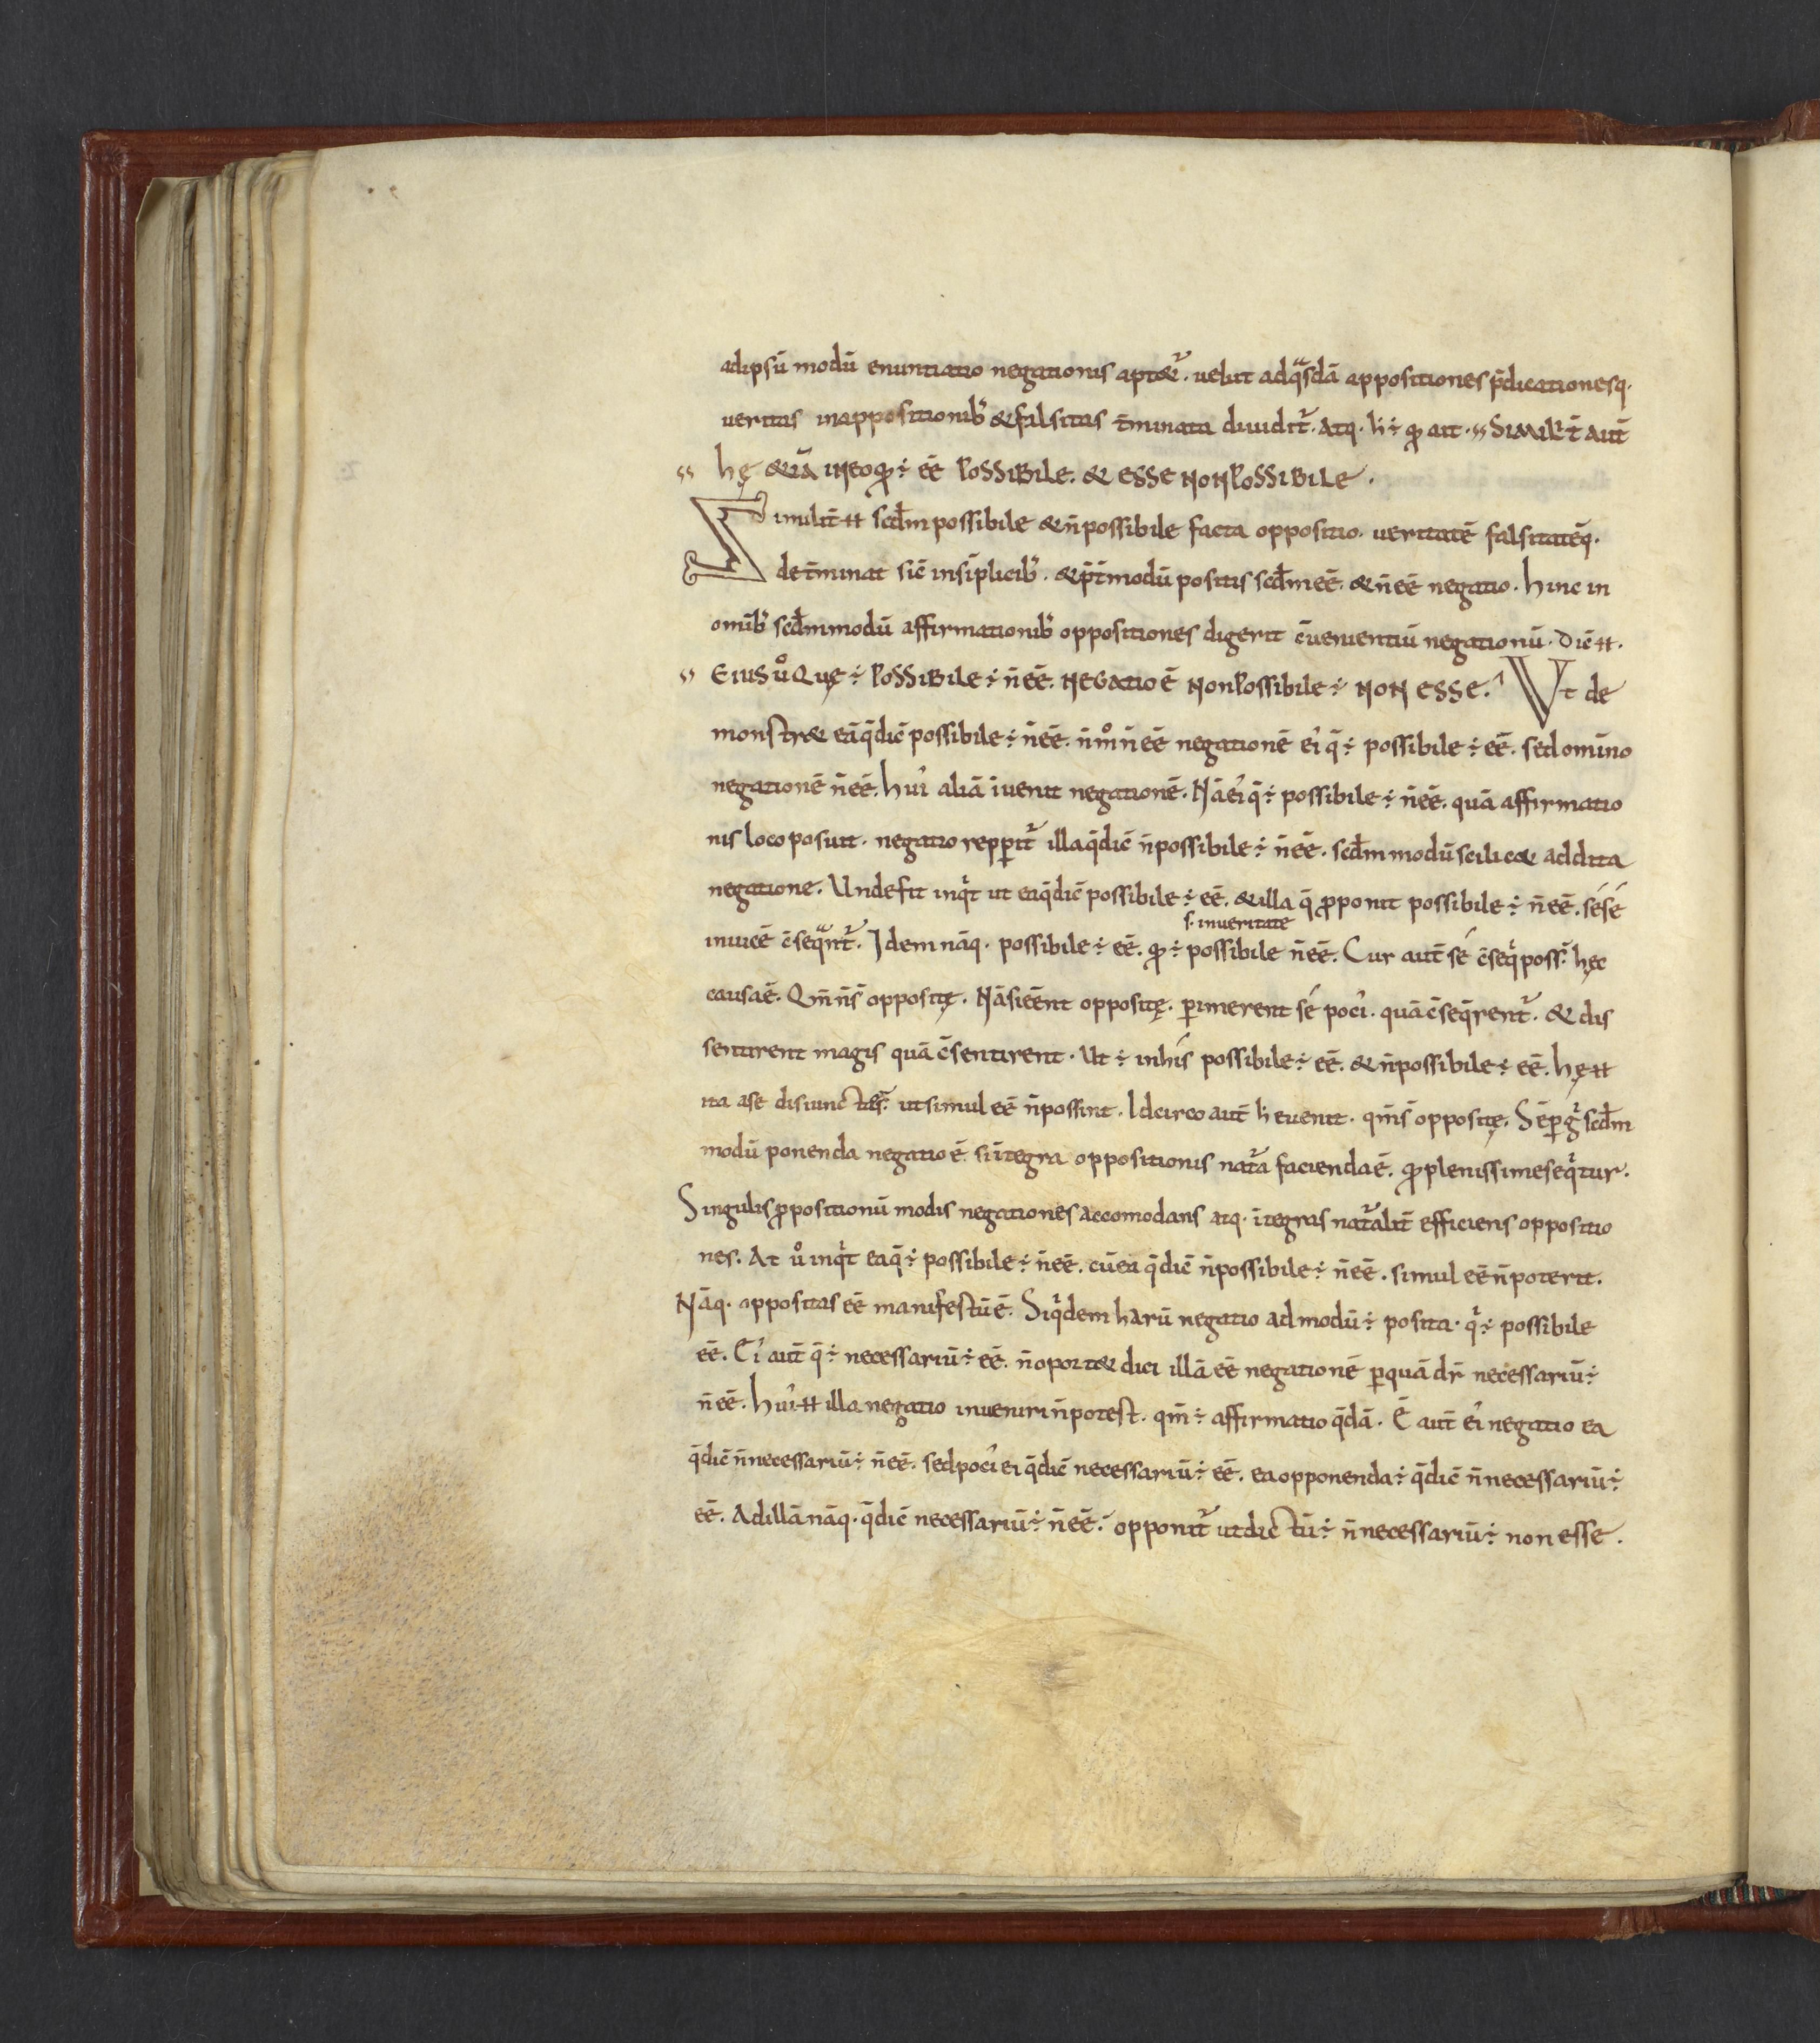 adipsū modū enuntiatio negationis aptet᷑. uelut adqͣsdā appositiones p̄dicationesq·
ueritas inappositionib; & falsitas t̄minata diuidit᷑. Atq· h÷ qđ ait· SIMILIT̄ AUT̄
hę &IĀ INEOqđ÷ ēē POSSIBILE. & ESSE NONPOSSIBILE.
Similit̄ H scđm possibile & n̄possibile facta oppositio. ueritatē falsitatēq·
det̄minat sic̄ insīplicib;. & p̄t̄modū positis scđm ēē. & n̄ ēē negatio. hinc in
omīb; scđmmodū affirmationib; oppositiones digerit c̄uenientiū negationū. Dic̄ H.
EIUSu̾o QUę÷ POSSIBILE÷ n̄ ēē. NEGATIO Ē NONPOSSIBILE÷ NON ESSE. Ut de
monstr& eāq̄dic̄ possibile÷ n̄ ēē. n̄ m̊ n̄ ēē negationē ei᾿ q̄÷ possibile÷ ēē. sed omīno
negationē n̄ ēē. hui᾿ aliā īuenit negationē. Nā ei᾿ q̄÷ possibile÷ n̄ ēē. quā affirmatio
nis loco posuit. negatio repperit᷑ illa q̄dic̄ n̄possibile÷ n̄ ēē. scđm modū scilic& addita
negatione. Undefit inqͥt ut eaq̄dic̄ possibile÷ ēē. & illa q̄ p̱ponit possibile÷ n̄ ēē. sésé
s· inueritate
inuicē c̄seqͣnt᷑. Idem nāq· possibile÷ ēē. qđ÷ possibile n̄ ēē. Cur aut̄ sé c̄seqͥ poss̄. hęc
causa ē. Qm̄ n̄ s̄ oppositę. Nā si ēēnt oppositę. p̱imerent sé poci᾿. quā c̄seqrent᷑. & dis
sentirent magis quā c̄sentirent. Ut÷ inhís possibile÷ ēē. & n̄possibile÷ ēē. hę H
ita ase disiunctęs̄. utsimul ēē n̄possint. Idcirco aut̄ h̄ euenit. qm̄ s̄ oppositę. Sēp̱ gͥ scđm
modū ponenda negatio ē. si ītegra oppositionis nat᷑a facienda ē. qđplenissime seqͥtur.
Singulis p̱positionū modis negationes accomodans atq· ītegras nat᷑alit̄ efficiens oppositio
nes. At u̾o inqͥt eaq̄÷ possibile÷ n̄ ēē. cū ea q̄dic̄ n̄possibile÷ n̄ ēē. simul ēē n̄poterit.
Nāq· oppositas ēē manifestū ē. Siqͥdem harū negatio ad modū÷ posita. qͥ÷ possibile
ēē. Ei᾿ aut̄ q̄÷ necessariū÷ ēē. n̄ oport& dici illā ēē negationē p̱quā dr̄ necessariū÷
n̄ ēē. hui᾿ H illa negatio inueniri n̄potest. qm̄÷ affirmatio q̄dā. Ē aut̄ ei᾿ negatio ea
q̄dic̄ n̄necessariū÷ n̄ ēē. sed poci᾿ ei q̄dic̄ necessariū÷ ēē. ea opponenda÷ q̄dic̄ n̄ necessariū÷
ēē. Adillā nāq· q̄dic̄ necessariū÷ n̄ ēē. opponit᷑ utdictū÷ n̄necessariū÷ non esse.